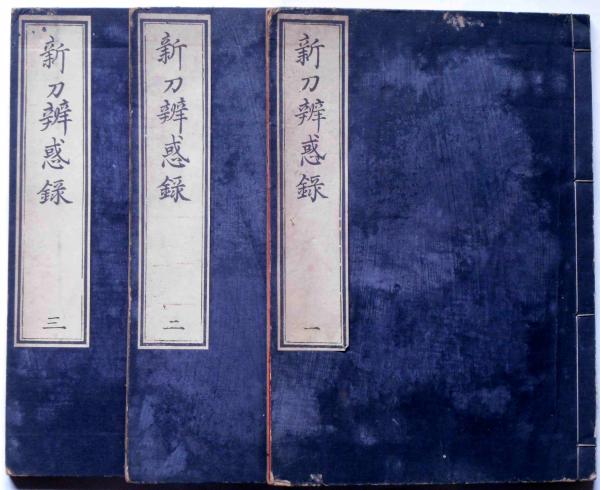 新刀辨惑録
一
新刀辨惑録
二
新刀辨惑録
三